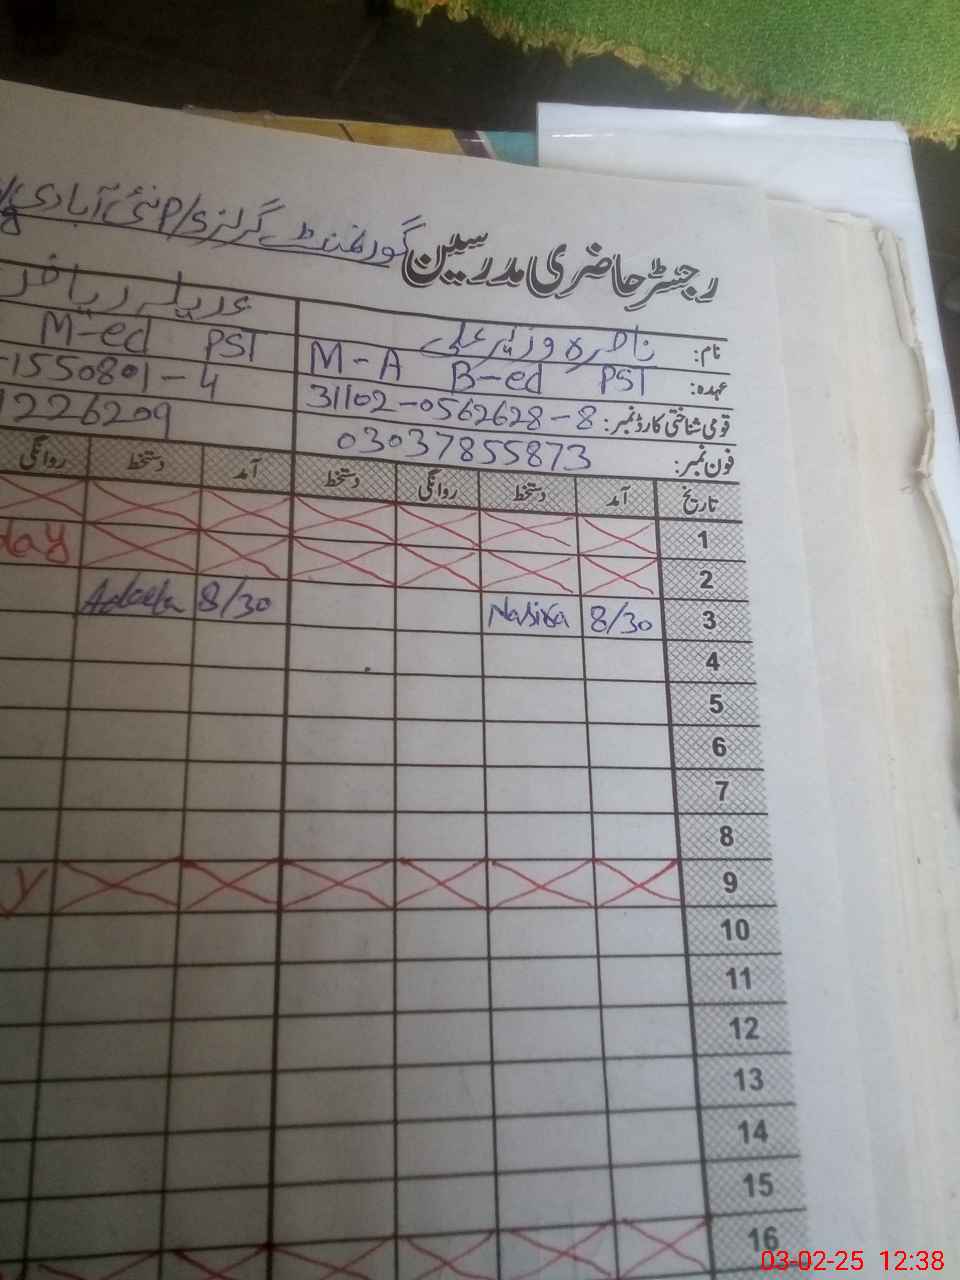 گورنمنٹ گرلز P/S نئی آبادی
رجسٹر حاضری مدرسین
نام: ناصرہ وزیر علی
عہدہ: M-A B-ed PST
M-ed PST
قومی شناختی کارڈ نمبر: 31102-0562628-8
-1550801-4
فون نمبر: 03037855873
1226209
تاریخ آمد دستخط روانگی دستخط آمد دستخط روانگی
1
2 day
3 8/30 Nasira 8/30 Adeela
4
5
6
7
8
9 y
10
11
12
13
14
15
16
03-02-25 12:38